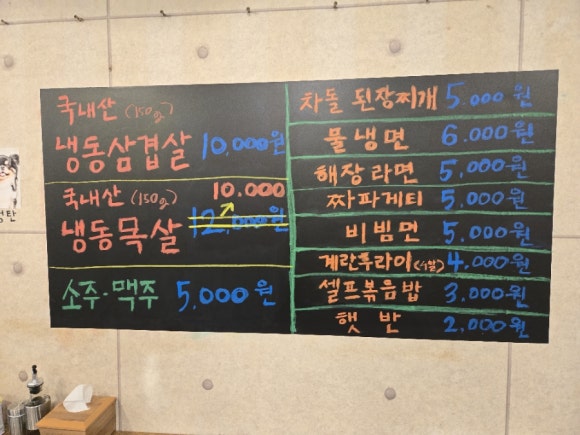 국내산 (150g)
냉동삼겹살 10,000원
국내산 (150g) 10.000
냉동목살 12,000원
소주·맥주 5,000원
차돌 된장찌개 5.000원
물냉면 6.000원
해장라면 5.000원
짜파게티 5.000원
비빔면 5.000원
계란후라이(4알) 4,000원
셀프볶음밥 3,000원
햇반 2,000원